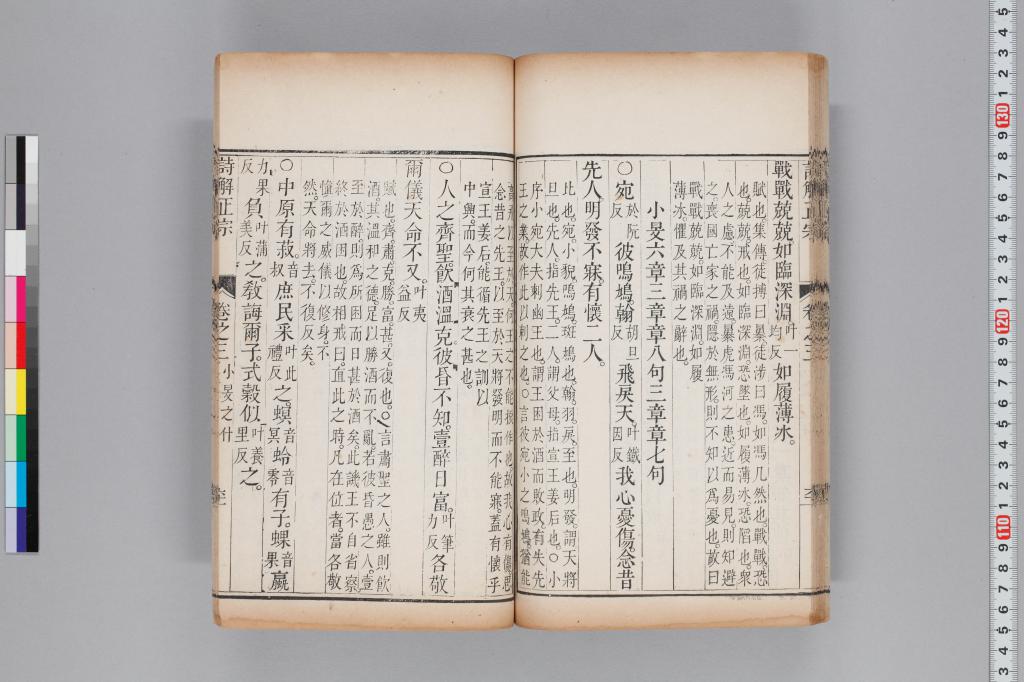 戰戰兢兢。如臨深淵。叶一均反如履薄冰。
賦也。集傳徒搏曰暴。徒涉曰馮。如馮几然也。戰戰。恐
也。兢兢。戒也。如臨深淵。恐墜也。如履薄冰。恐陷也。衆
人之慮。不能及遠。暴虎馮河之患。近而易見。則知避
之。喪國亡家之禍。隱於無形。則不知以爲憂也。故曰
戰戰兢兢。如臨深淵。如履
薄冰。懼及其禍之辭也。
小旻六章三章章八句三章章七句
○宛於阮反彼鳴鳩。翰胡旦反飛戾天。叶鐵因反我心憂傷。念昔
先人。明發不寐。有懷二人。
此也。宛。小貌。鳴鳩。斑鳩也。翰。羽。戾。至也。明發。謂天將
旦也。先人。指先王。二人。謂父母。指宣王姜后也。○小
序。小宛。大夫刺幽王也。謂王困於酒而敗政。有失先
王之業。故作此以刺之也。○言彼宛小之鳴鳩。猶能
高飛以至於天。何王之不能振作也。故我心有傷。思
念昔之先王。以至於天將發明而不能寐。蓋有懷乎
宣王姜后。能循先王之訓以
中興。而今何其衰之甚也。
○人之齊聖。飲酒溫克。彼昏不知。壹醉日富。叶筆力反各敬
爾儀。天命不又。叶夷益反
賦也。齊。肅。克。勝。富。甚。又。復也。○言肅聖之人。雖則飲
酒。其溫和之德。足以勝酒而不亂。若彼昏愚之人。壹
至於醉。則爲所困而日甚於酒矣。此譏王不自省察
終於酒困也。故相戒曰。直此之時。凡在位者。當各敬
慎爾之威儀以修身。不
然。天命將去。不復反矣。
○中原有菽。音叔庶民采叶此禮反之。螟音冥蛉音零有子。蜾音果蠃
力果反負叶蒲美反之。教誨爾子。式穀似叶養里反之。
詩解正宗 卷之三 小旻之什